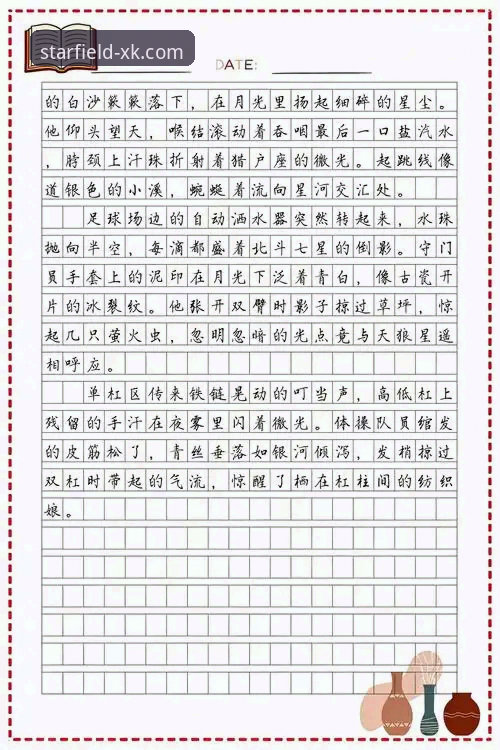 starfield-xk.com
DATE:
的白沙簌簌落下，在月光里扬起细碎的星尘。
他仰头望天，喉结滚动着吞咽最后一口盐汽水
，脖颈上汗珠折射着猎户座的微光。起跳线像
道银色的小溪，蜿蜒着流向星河交汇处。
足球场边的自动洒水器突然转起来，水珠
抛向半空，每滴都盛着北斗七星的倒影。守门
员手套上的泥印在月光下泛着青白，像古瓷开
片的冰裂纹。他张开双臂时影子掠过草坪，惊
起几只萤火虫，忽明忽暗的光点竟与天狼星遥
相呼应。
单杠区传来铁链晃动的叮当声，高低杠上
残留的手汗在夜雾里闪着微光。体操队员绾发
的皮筋松了，青丝垂落如银河倾泻，发梢掠过
双杠时带起的气流，惊醒了栖在杠柱间的纺织
娘。